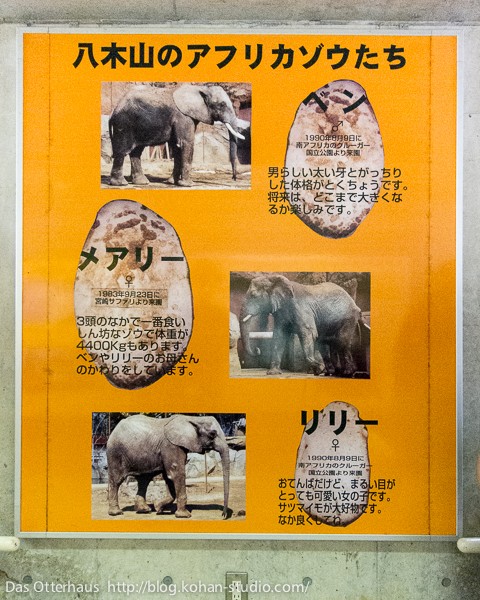 八木山のアフリカゾウたち
ベン
♂
1990年8月9日に
南アフリカのクルーガー
国立公園より来園
男らしい太い牙とがっちり
した体格がとくちょうです。
将来は、どこまで大きくな
るか楽しみです。
メアリー
♀
1983年9月23日に
宮崎サファリより来園
3頭のなかで一番食い
しん坊なゾウで体重が
4400Kgもあります。
ベンやリリーのお母さん
のかわりをしています。
リリー
♀
1990年8月9日に
南アフリカのクルーガー
国立公園より来園
おてんばだけど、まるい目が
とっても可愛い女の子です。
サツマイモが大好物です。
なか良くしてね
Das Otterhaus http://blog.kohan-studio.com/